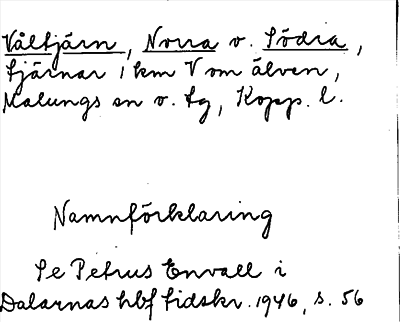 Våltjärn, Norra o. Södra,
tjärnar 1 km V om älven,
Malungs sn o. tg, Kopp. l.
Namnförklaring
Se Petrus Envall i
Dalarnas hbf tidskr. 1946, s. 56